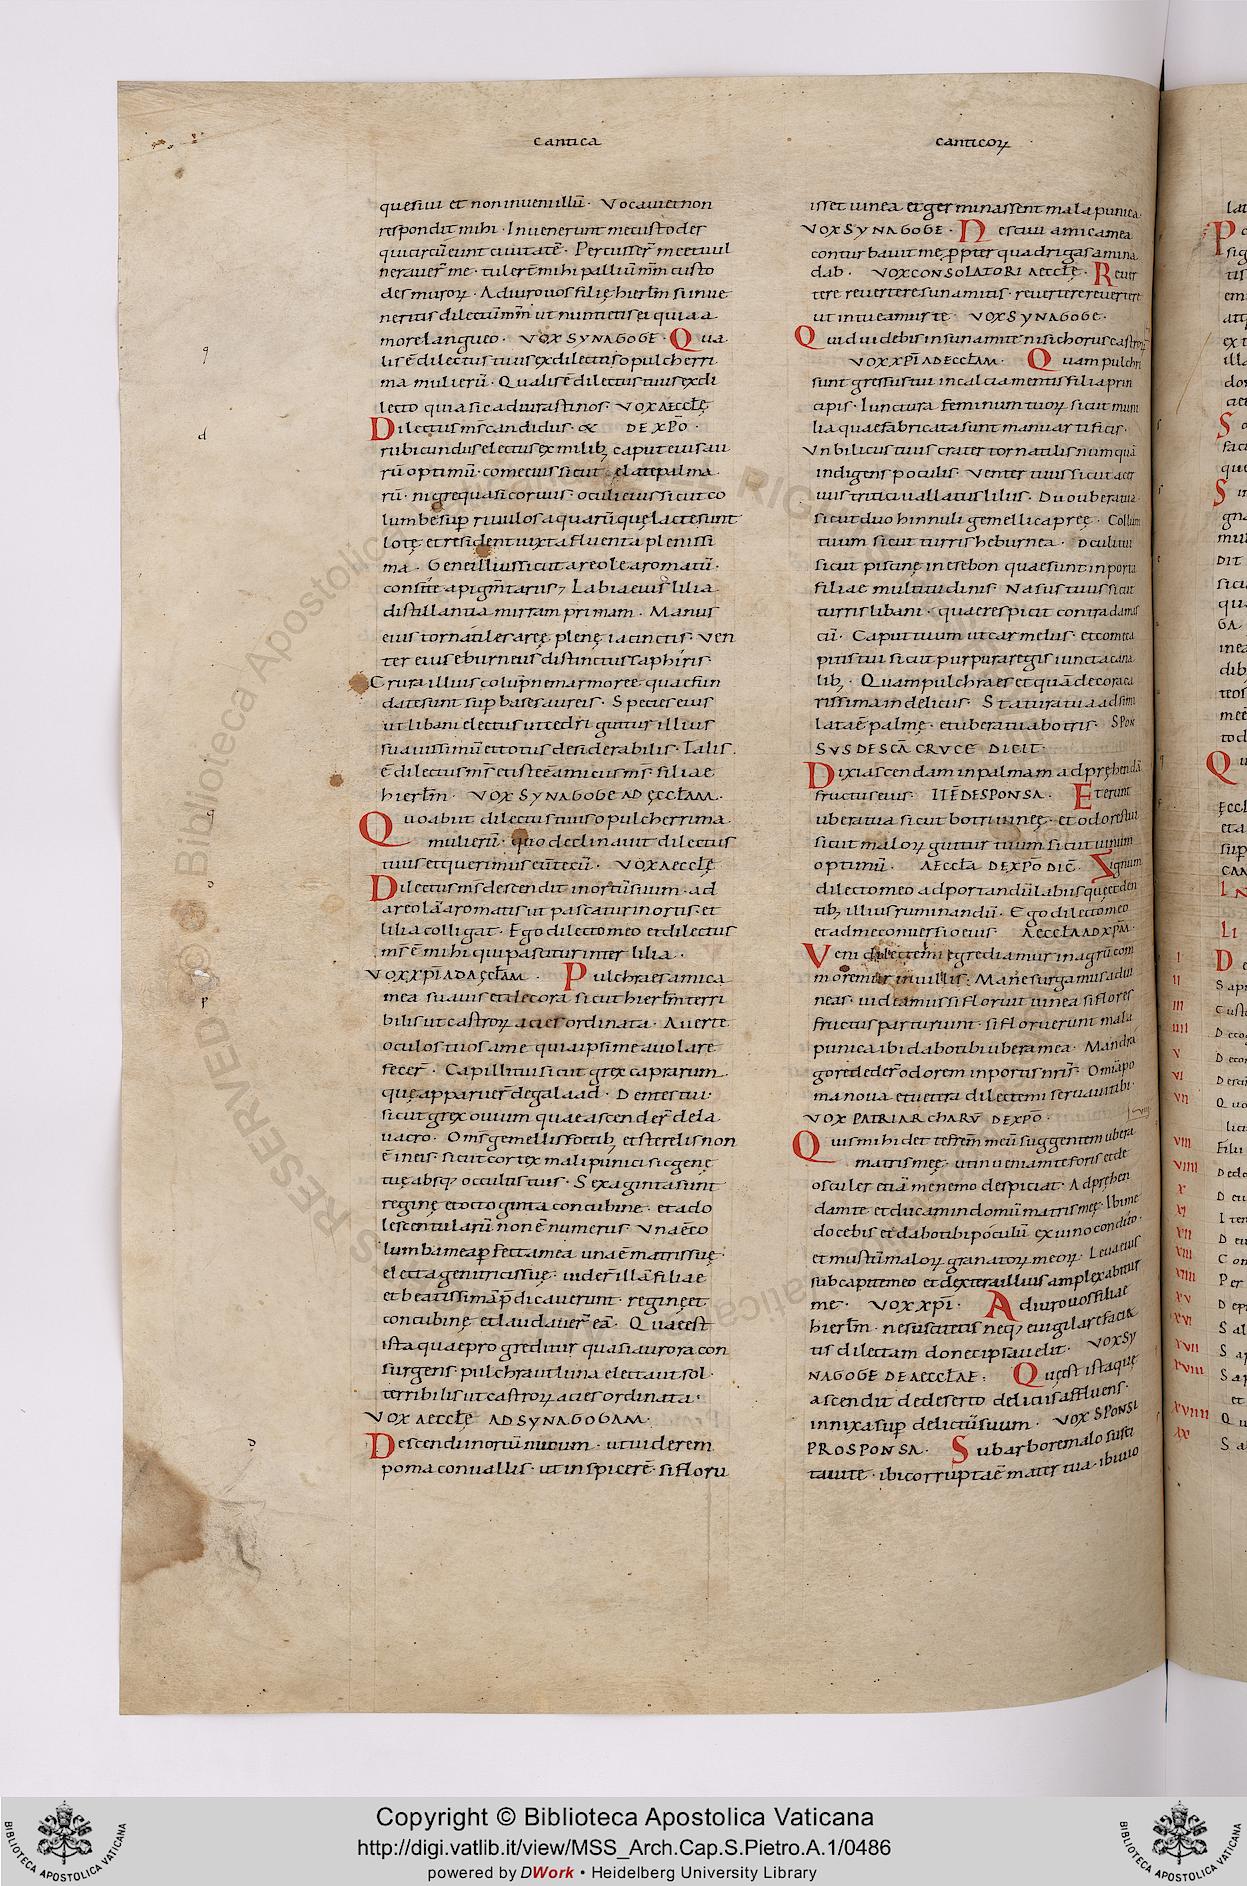 cantica
quesiui et non inueni illū · Vocaui et non
respondit mihi · Inuenerunt me custodes
qui circūeunt ciuitatē · Percusser̄ me et uul
nerauer̄ me · tuler̄t mihi palliū m̄m custo
des muroꝝ · Adiuro uos filię hierl̄m si inue
neritis dilectū m̄m ut nuntietis ei quia a
more langueo · VOX SYNAGOGE · Qua
lis ē dilectus tuus ex dilecto o pulcherri
ma mulierū · Qualis ē dilectus tuus ex di
lecto quia sic adiurasti nos · VOX AECCLĘ
Dilectus m̄s candidus · & DE XP̄O ·
rubicundus electus ex milib; caput eius au
rū optimū · come eius sicut elate palma
rū · nigre quasi coruus · oculi eius sicut co
lumbe sup̄ riuulos aquarū quę lacte sunt
lotę et resident iuxta fluenta plenissi
ma · Gene illius sicut areole aromatū ·
consite a pigm̄tariis Labia eius lilia
distillantia mirram primam · Manus
eius tornatiles aręę plenę iacinctis · Ven
ter eius eburneus distinctus saphiris ·
Crura illius colupne marmoree · quae fun
date sunt sup̄ bases aureis · Species eius
ut libani electus ut cedri guttur illius
suauissimū et totus desiderabilis · Talis
ē dilectus m̄s et iste ē amicus m̄s filiae
hierl̄m · VOX SYNAGOGE AD ĘCCLAM ·
Quo abiit dilectus tuus o pulcherrima
mulierū · quo declinauit dilectus
tuus et querimus eū tecū · VOX AECCLĘ
Dilectus m̄s descendit in ortū suum · ad
areolā aromatis ut pascatur in ortis · et
lilia colligat · Ego dilecto meo et dilectus
m̄s ē mihi qui pascitur inter lilia ·
VOX XPĪ AD AĘCLAM · Pulchra es amica
mea suauis et decora sicut hierl̄m terri
bilis ut castroꝝ acies ordinata · Auerte
oculos tuos a me quia ipsi me auolare
fecer̄ · Capilli tui sicut grex caprarum
quę apparuer̄ de galaad · Dentes tui ·
sicut grex ouium quae ascender̄ de la
uacro · Om̄s gemellis foetib; et sterelis non
ē in eis · sicut cortex mali punici sic genę
tuę absq; occultis tuis · Sexaginta sunt
reginę et octoginta concubine · et ado
lescentularū non ē numerus · Una ē co
lumba mea p̄fecta mea una ē matris suę ·
electa genitricis suę · uider̄ illā filiae
et beatissimā p̄dicauerunt · reginę et
concubinę et laudauer̄ eā · Quae est
ista quae progreditur quasi aurora con
surgens · pulchra ut luna electa ut sol ·
terribilis ut castroꝝ acies ordinata ·
VOX AECCLĘ AD SYNAGOGAM ·
Descendi in ortū nucum · ut uiderem
poma conuallis · ut inspicerē · si floru
canticoꝝ
isset uinea et germinassent mala punica ·
VOX SYNAGOGE · Nesciui amica mea
conturbauit me p̄pter quadrigas amina
dab · VOX CONSOLATORI AECCLĘ · Reuer
tere reuertere sunamitis · reuertere reuertere
ut intueamur te VOX SYNAGOGE ·
Quid uidebis in sunamite nisi chorus castroꝝ
VOX XPĪ AD ECCLAM · Quam pulchri
sunt gressus tui in calciamentis filia prin
cipis · Iunctura feminum tuoꝝ sicut muni
lia quae fabricata sunt manu artificis ·
Vnbilicus tuus crater tornatilis numquā
indigens poculis · Venter tuus sicut acer
uus tritici uallatus liliis · Duo ubera tua
sicut duo hinnuli gemelli capreę · Collum
tuum sicut turris heburnea · Oculi tui
sicut piscinę in esebon quae sunt in porta
filiae multitudinis Nasus tuus sicut
turris libani · quae respicit contra damas
cū · Caput tuum ut carmelus · et come ca
pitis tui sicut purpura regis iuncta cana
lib; · Quam pulchra es et quā decora ca
rissima in deliciis · Statura tua adsimi
lata ē palmę · et ubera tua botris · SPON
SVS DE SCĀ CRVCE DICIT ·
Dixi ascendam in palmam adprehendā
fructus eius · ITĒ DE SPONSA · Et erunt
ubera tua sicut botri uineę · et odor oris tui
sicut maloꝝ guttur tuum sicut uinum
optimū · AECCLA DE XPO DIC̄ · Zignum
dilecto meo ad portandū labiisquę et den
tib; illius ruminandū · Ego dilecto meo
et ad me conuersio eius AECCLA AD XPM ·
Veni dilecte mi egrediamur in agrū com
moremur in uillis · Mane surgamus ad ui
neas · uideamus si floruit uinea si flores
fructus parturiunt · si floruerunt mala
punica ibi dabo tibi ubera mea · Mandra
gore deder̄ odorem in portis nr̄is · Omia po
ma noua et uetera dilecte mi seruaui tibi ·
VOX PATRIARCHARV̄ DE XPO ·
Quis mihi det te frēm meū suggentem ubera
matris meę · ut inueniam te foris et de
osculer et iā me nemo despiciat · Adprehen
dam te et ducam in domū matris meę · Ibi me
docebis et dabo tibi poculū ex uino condito ·
et mustū maloꝝ granatoꝝ meoꝝ · Leua eius
sub capite meo et dextera illius amplexabitur
me · VOX XPĪ · Adiuro uos filiae
hierl̄m · ne suscitetis neq; euigilare facia
tis dilectam donec ipsa uelit · VOX SY
NAGOGE DE AECCLAE : Quę est ista quę
ascendit de deserto deliciis affluens ·
innixa sup̄ delictū suum · VOX SPONSI
PRO SPONSA · Sub arbore malo susci
taui te · ibi corrupta ē mater tua · ibi uio
Copyright © Biblioteca Apostolica Vaticana
http://digi.vatlib.it/view/MSS_Arch.Cap.S.Pietro.A.1/0486
powered by DWork • Heidelberg University Library
BIBLIOTECA APOSTOLICA VATICANA
BIBLIOTECA APOSTOLICA VATICANA